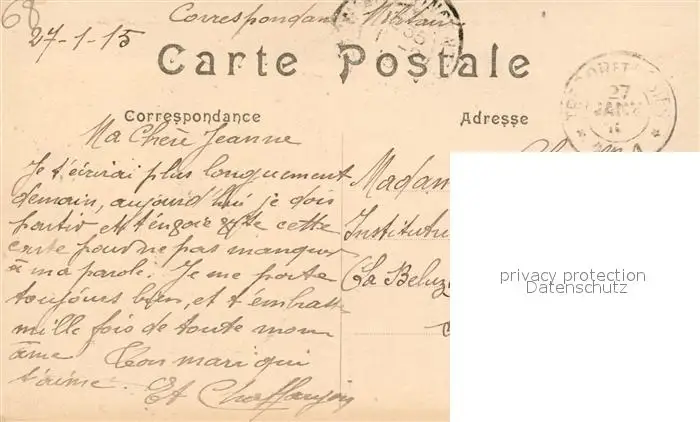 68
Correspondance Militaire
27-1-15
Carte Postale
Correspondance
Adresse
27
JANV
Ma Chère Jeanne
Je t'écrirai plus longuement
demain, aujourd'hui je dois
partir et t'envoie cette
carte pour ne pas manquer
à ma parole. Je me porte
toujours bien, et t'embrasse
mille fois de toute mon
âme Ton mari qui
t'aime. Et
Madam
Institutri
La Beluz
privacy protection
Datenschutz